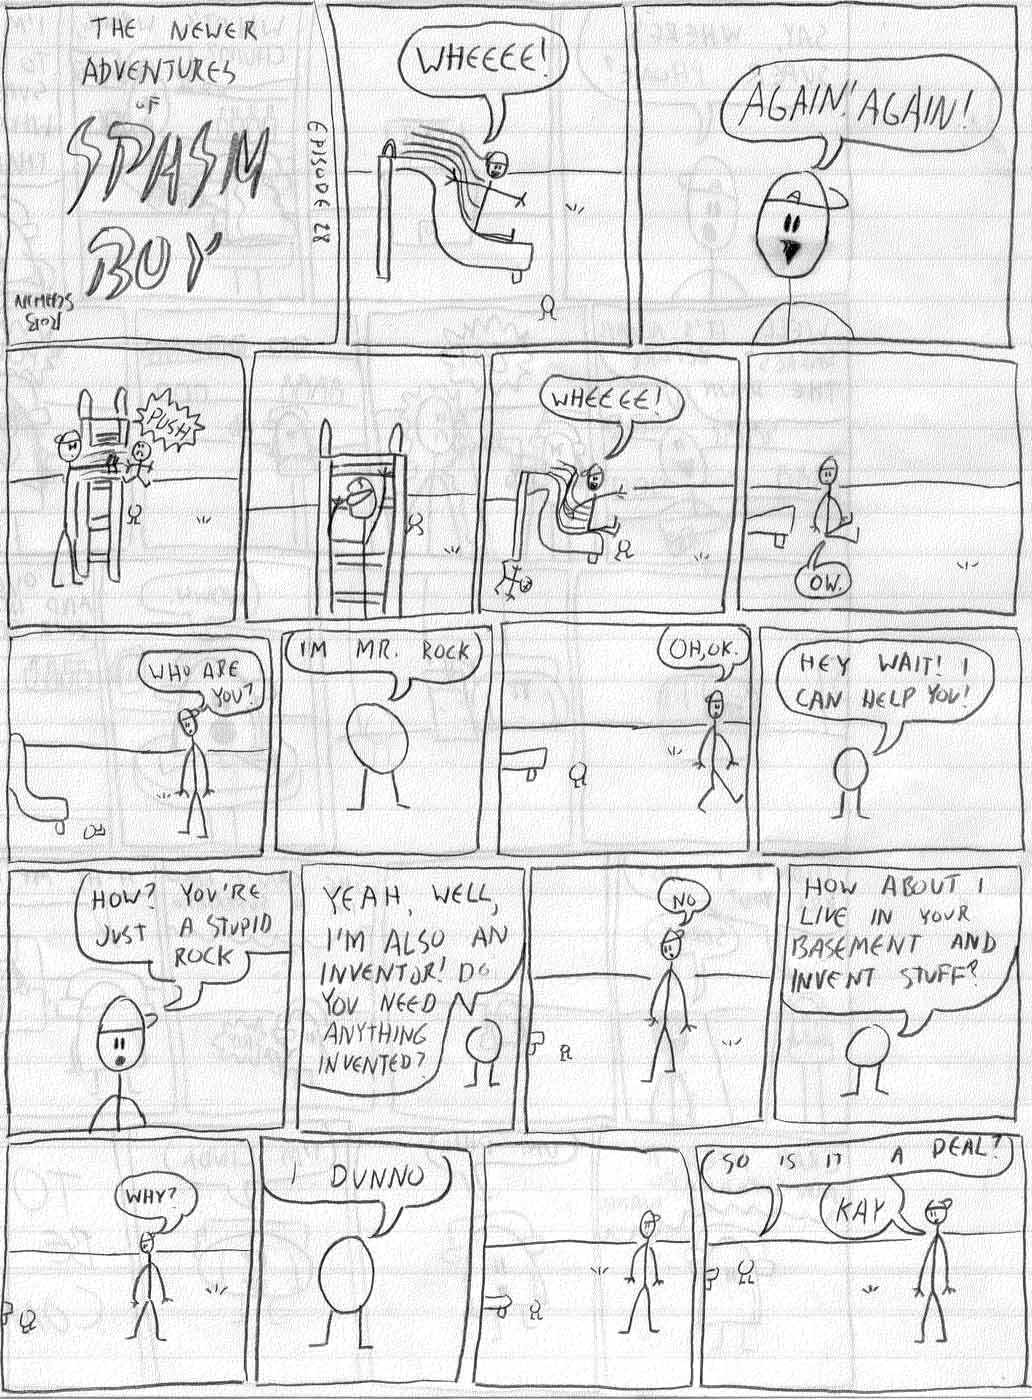 THE NEWER
ADVENTURES
OF
SPASM
BOY
EPISODE 28
WHEEEE!
AGAIN! AGAIN!
PUSH
WHEEEE!
OW.
WHO ARE
YOU?
I'M MR. ROCK
OH, OK.
HEY WAIT! I
CAN HELP YOU!
HOW? YOU'RE
JUST A STUPID
ROCK
YEAH, WELL,
I'M ALSO AN
INVENTOR! DO
YOU NEED
ANYTHING
INVENTED?
NO
HOW ABOUT I
LIVE IN YOUR
BASEMENT AND
INVENT STUFF?
WHY?
I DUNNO
SO IS IT A DEAL?
KAY